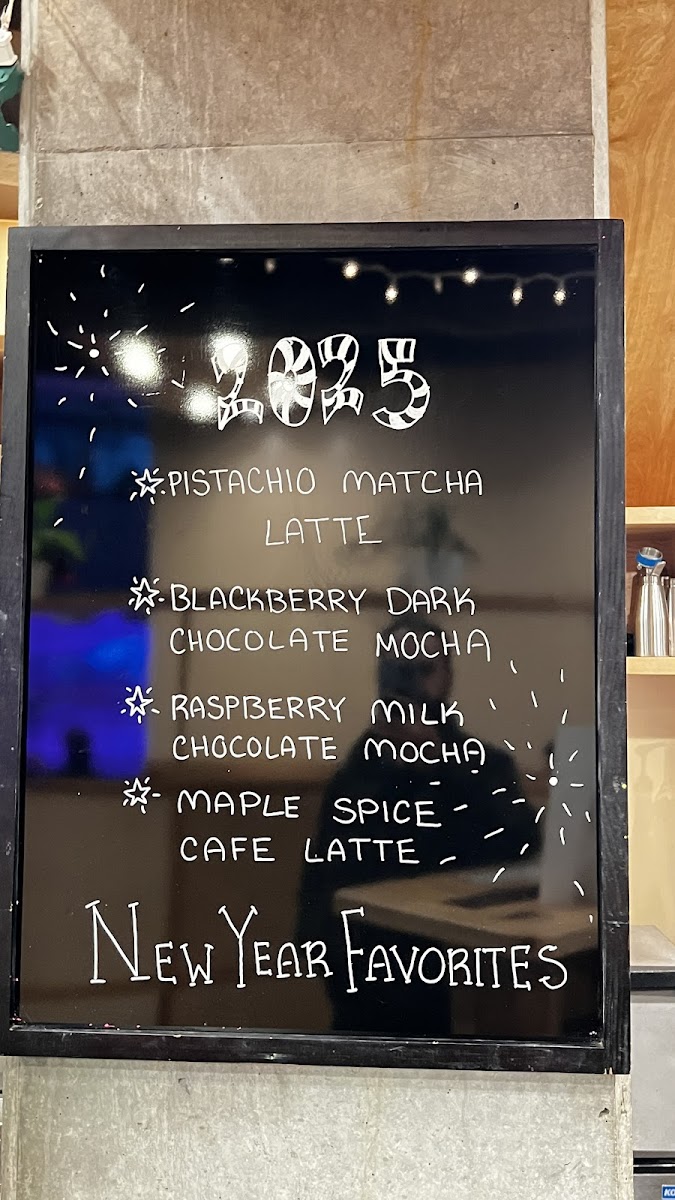 2025
PISTACHIO MATCHA
LATTE
BLACKBERRY DARK
CHOCOLATE MOCHA
RASPBERRY MILK
CHOCOLATE MOCHA
MAPLE SPICE
CAFE LATTE
NEW YEAR FAVORITES